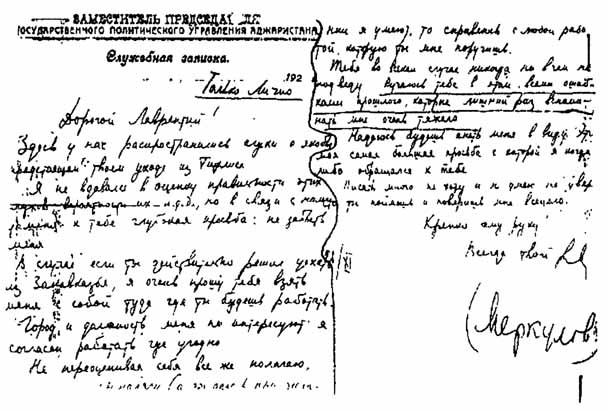 ЗАМЕСТИТЕЛЬ ПРЕДСЕДАТЕЛЯ
ГОСУДАРСТВЕННОГО ПОЛИТИЧЕСКОГО УПРАВЛЕНИЯ АДЖАРИСТАНА
Служебная записка.
192
Только Лично
Дорогой Лаврентий!
Здесь у нас распространились слухи о якобы
предстоящем твоем уходе из Тифлиса
Я не вдаваясь в оценку правильности этих
слухов вероятности их и.т.д., но в связи с ними
к тебе глубокая просьба: не забыть
меня
В случае если ты действительно решил уехать
из Закавказья, я очень прошу тебя взять
меня с собой туда где ты будешь работать.
Город и должность меня не интересуют я
согласен работать где угодно
Не переоценивая себя все же полагаю,
я умею), то справлюсь с любой рабо
той которую ты мне поручишь.
Тебя во всяком случае никогда ни в чем не
подведу Ручаюсь тебе в этом всеми ошиб
ками прошлого, которые лишний раз вспоми
нать мне очень тяжело
Надеюсь будешь иметь меня в виду. Эт
моя самая большая просьба с которой я когда
либо обращался к тебе
Писать много не хочу и не думаю увер
ты поймешь и поверишь мне всецело.
Крепко жму руку
Всегда твой
(Меркулов)